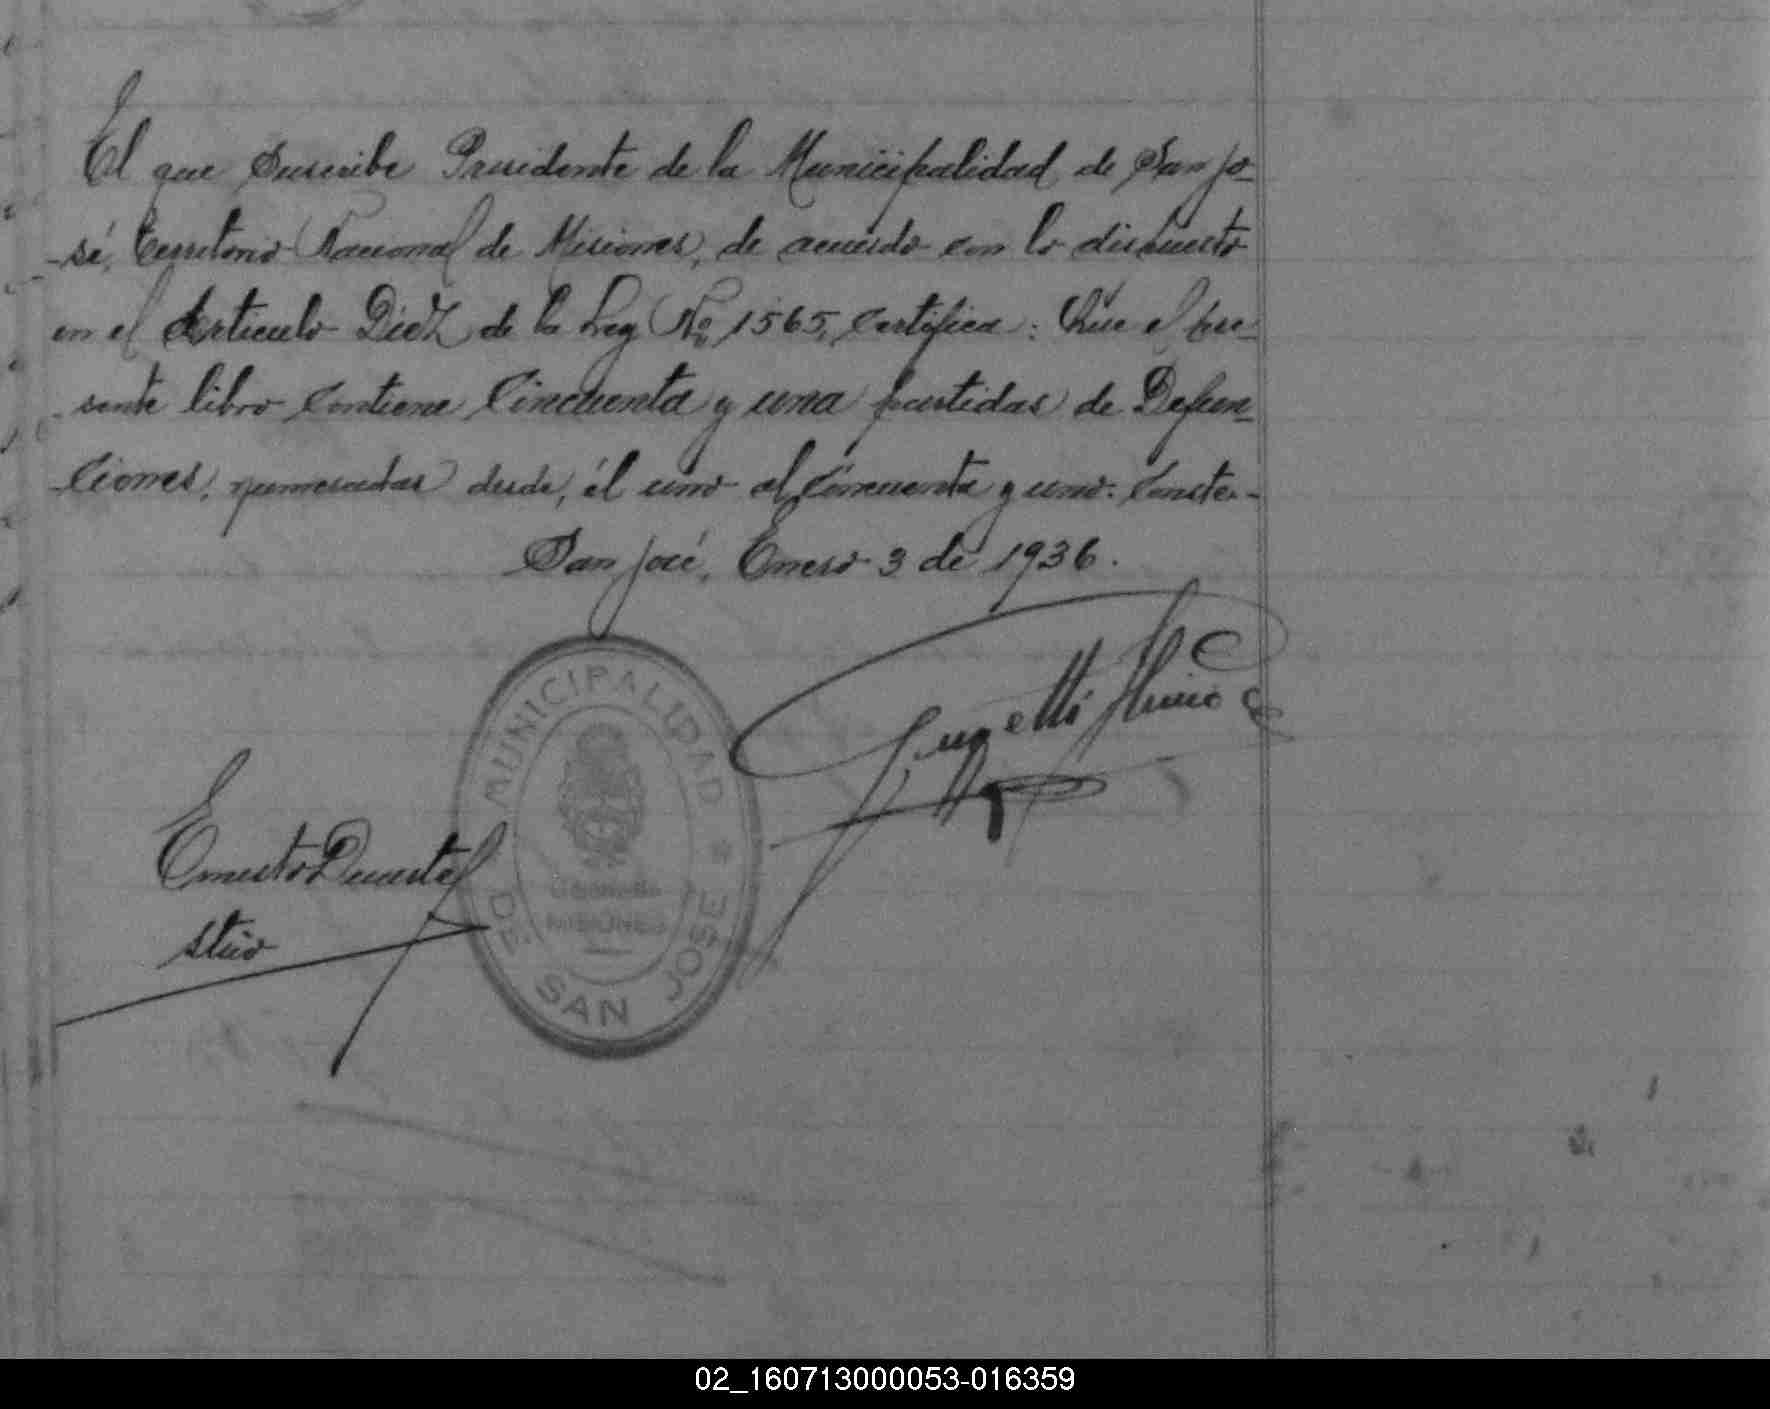 El que Suscribe Presidente de la Municipalidad de San Jo-
-sé, Territorio Nacional de Misiones, de acuerdo con lo dispuesto
en el Artículo Diez de la Ley Nº 1565, Certifica: Que el pre-
-sente libro Contiene Cincuenta y una partidas de Defun-
-Ciones, numeradas desde, él uno al Cincuenta y uno. Conste.-
San José, Enero 3 de 1936.
MUNICIPALIDAD
DE SAN JOSE
MISIONES
Ernesto Duarte
Strio
02_160713000053-016359